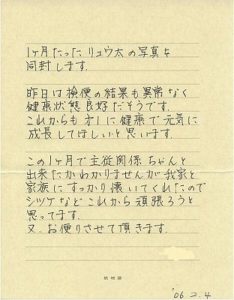 1ヶ月たったリュウ太の写真を
同封します。
昨日は検便の結果も異常なく
健康状態良好だそうです。
これからも 健康で元気に
成長してほしいと思います。
この1ヶ月で主従関係ちゃんと
出来たかわかりませんが我家と
家族にすっかり懐いてくれたので
シツケなどこれから頑張ろうと
思ってます。
又、お便りさせて頂きます。
'06 2.4